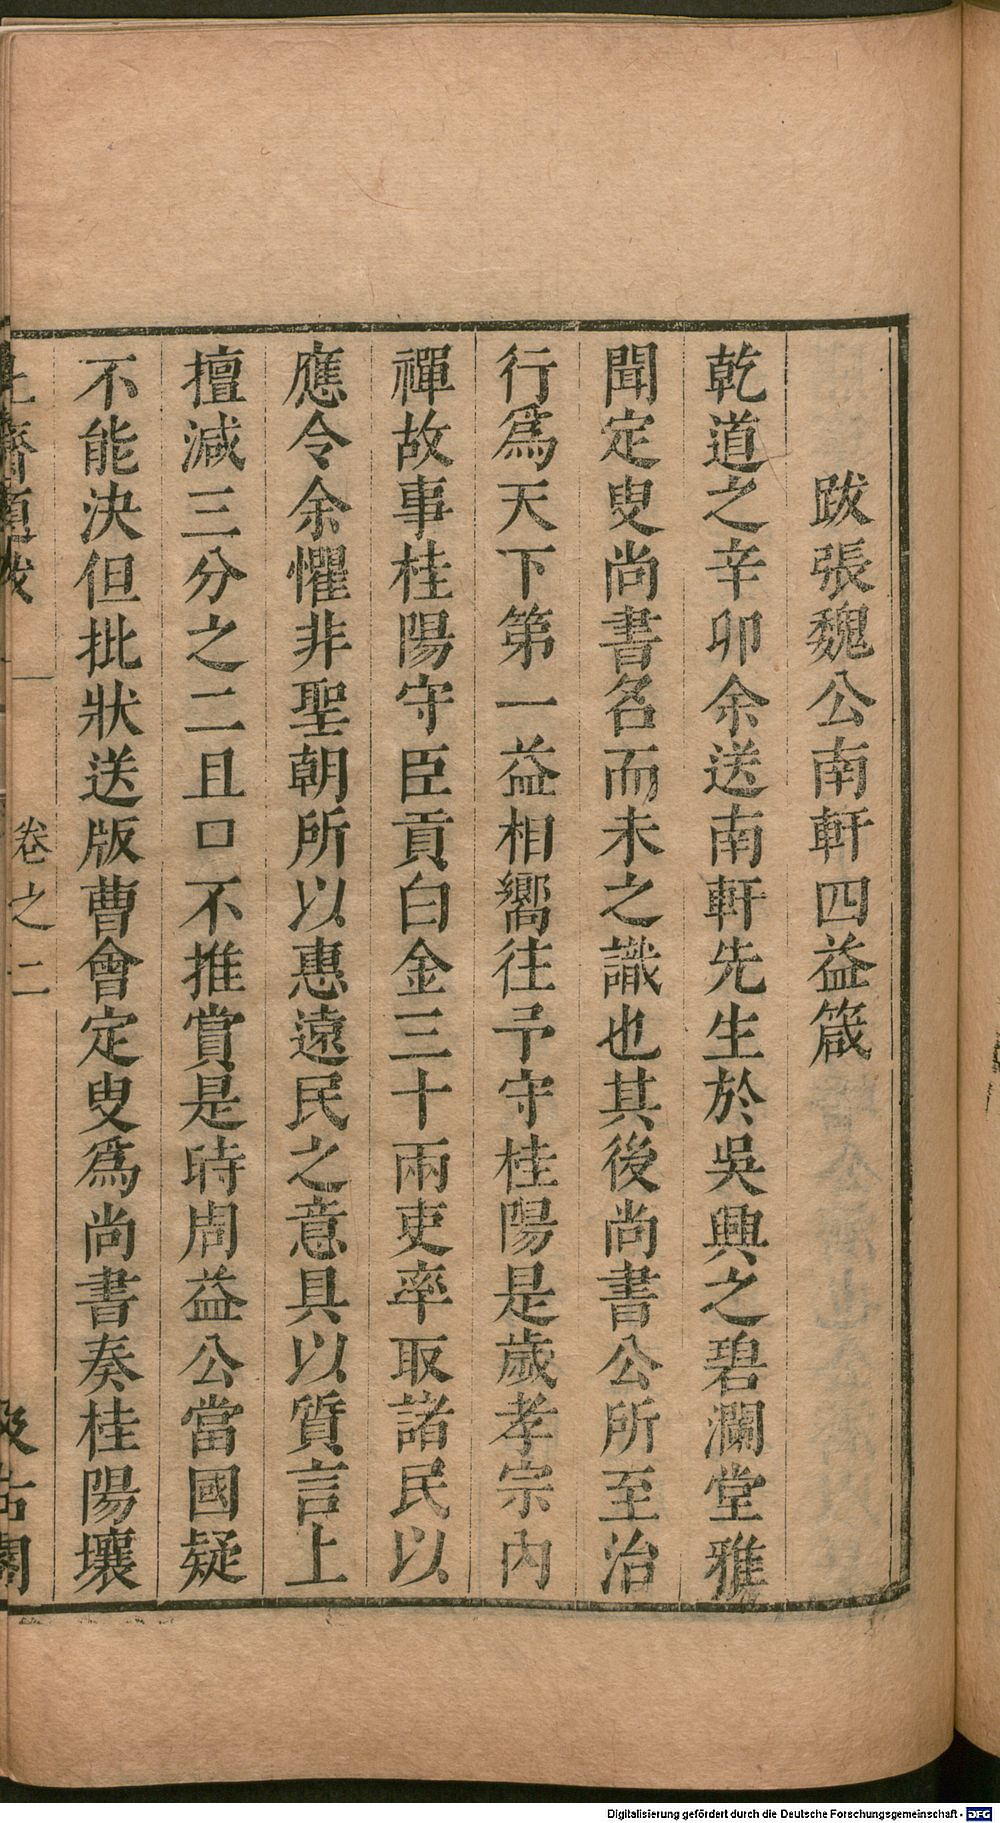 跋張魏公南軒四益箴
乾道之辛卯余送南軒先生於吳興之碧瀾堂雅
聞定叟尚書名而未之識也其後尚書公所至治
行爲天下第一益相嚮往予守桂陽是歲孝宗內
禪故事桂陽守臣貢白金三十兩吏率取諸民以
應令余懼非聖朝所以惠遠民之意具以質言上
擅減三分之二且口不推賞是時周益公當國疑
不能決但批狀送版曹會定叟爲尚書奏桂陽壤
止齋題跋 卷之二 汲古閣
Digitalisierung gefördert durch die Deutsche Forschungsgemeinschaft - DFG